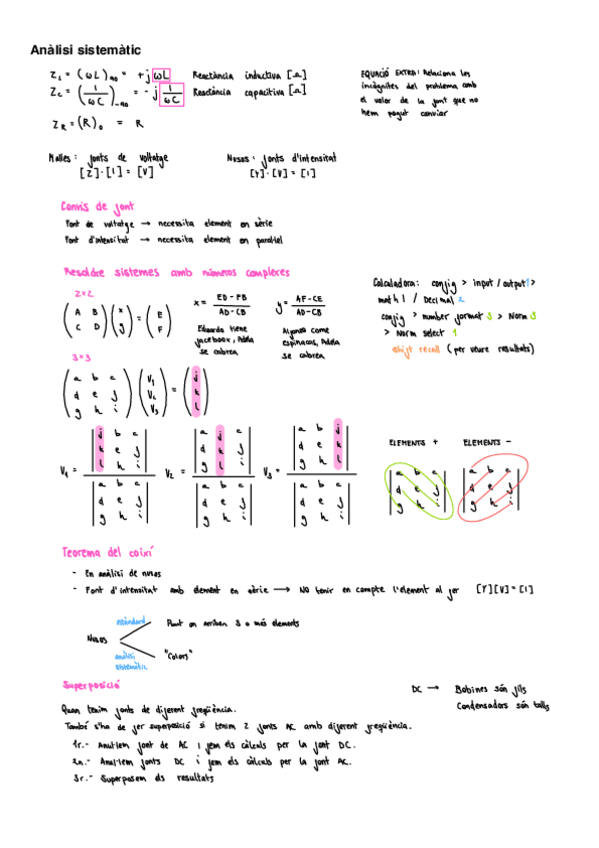 Anàlisi sistemàtic
Z_L = (ωL)_90 = +jωL Reactància inductiva [Ω]
Z_C = (1/ωC)_-90 = -j 1/ωC Reactància capacitiva [Ω]
Z_R = (R)_0 = R
EQUACIÓ EXTRA: Relaciona les
incògnites del problema amb
el valor de la font que no
hem pogut canviar
Malles: fonts de voltatge
[Z]·[I] = [V]
Nusos: fonts d'intensitat
[Y]·[V] = [I]
Canvis de font
Font de voltatge → necessita element en sèrie
Font d'intensitat → necessita element en paral·lel
Resoldre sistemes amb números complexes
2x2
(A B
C D) (x
y) = (E
F)
x = ED-FB / AD-CB
Eduardo tiene
facebook, Adela
se cabrea
y = AF-CE / AD-CB
Alfonso come
espinacas, Adela
se cabrea
Calculadora: config > input / output 1 >
math 1 / Decimal 2
config > number format 3 > Norm 3
> Norm select 1
shift recall (per veure resultats)
3x3
(a b c
d e f
g h i) (V1
V2
V3) = (j
k
l)
V1 = |j b c
k e f
l h i| / |a b c
d e f
g h i|
V2 = |a j c
d k f
g l i| / |a b c
d e f
g h i|
V3 = |a b j
d e k
g h l| / |a b c
d e f
g h i|
ELEMENTS +
|a b c
d e f
g h i|
ELEMENTS -
|a b c
d e f
g h i|
Teorema del coixí
- En anàlisi de nusos
- Font d'intensitat amb element en sèrie → NO tenir en compte l'element al fer [Y][V] = [I]
Nusos
estàndard Punt on arriben 3 o més elements
anàlisi
sistemàtic "Colors"
Superposició
DC → Bobines són fils
Condensadors són talls
Quan tenim fonts de diferent freqüència.
També s'ha de fer superposició si tenim 2 fonts AC amb diferent freqüència.
1r.- Anul·lem font de AC i fem els càlculs per la font DC.
2n.- Anul·lem fonts DC i fem els càlculs per la font AC.
3r.- Superposem els resultats